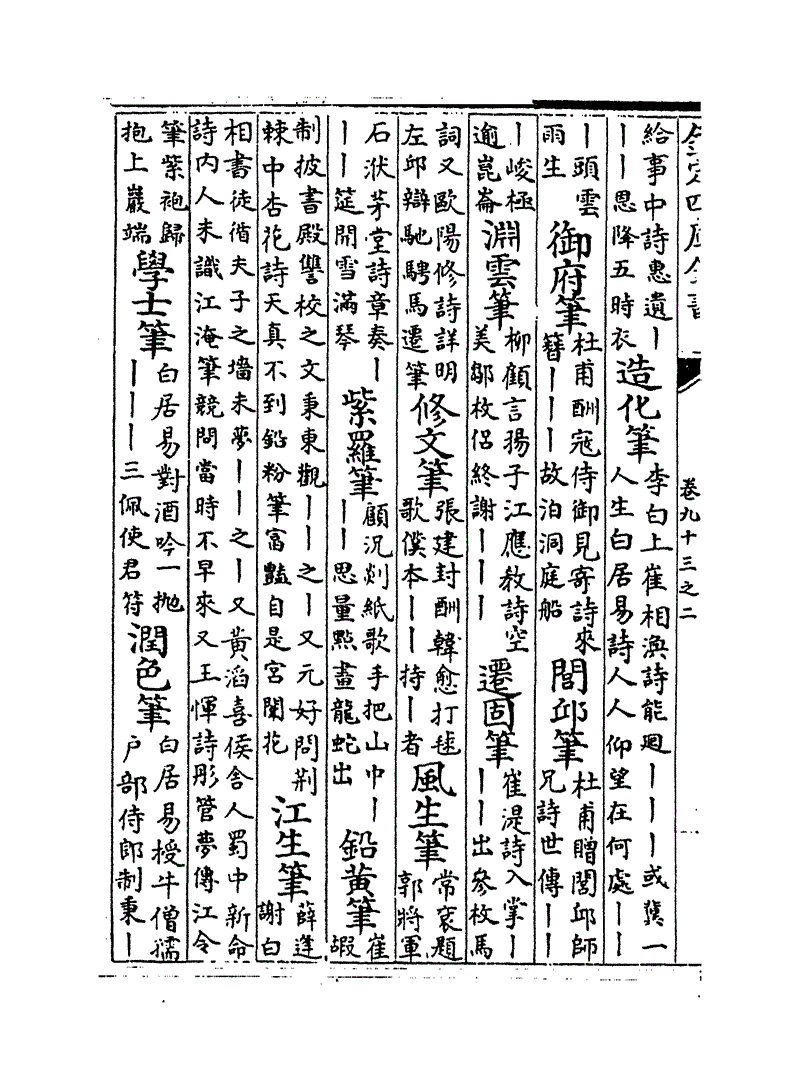 欽定四庫全書
卷九十三之二
給事中詩惠遺丨
丨丨思降五時衣
造化筆
李白上崔相渙詩能迴丨丨丨或冀一
人生白居易詩人人仰望在何處丨丨
丨頭雲
雨生
御府筆
杜甫酬寇侍御見寄詩來
簪丨丨丨故泊洞庭船
閭邱筆
杜甫贈閭邱師
兄詩世傳丨丨
丨峻極
逾崑崙
淵雲筆
柳顧言揚子江應教詩空
美鄒枚侣終謝丨丨丨
遷固筆
崔湜詩入掌丨
丨丨出參枚馬
詞又歐陽修詩詳明
左邱辯馳騁馬遷筆
修文筆
張建封酬韓愈打毬
歌僕本丨丨持丨者
風生筆
常袞題
郭將軍
石洑茅堂詩章奏丨
丨丨筵開雪滿琴
紫羅筆
顧況剡紙歌手把山巾丨
丨丨思量點畫龍蛇出
鉛黃筆
崔
嘏
制披書殿讐校之文秉東觀丨丨之丨又元好問荆
棘中杏花詩天真不到鉛粉筆富豔自是宮闈花
江生筆
薛逢
謝白
相書徒循夫子之墻未夢丨丨之丨又黃滔喜侯舍人蜀中新命
詩內人未識江淹筆競問當時不早來又王惲詩彤管夢傳江令
筆紫袍歸
抱上巖端
學士筆
白居易對酒吟一抛
丨丨丨三佩使君符
潤色筆
白居易授牛僧孺
戶部侍郎制秉丨